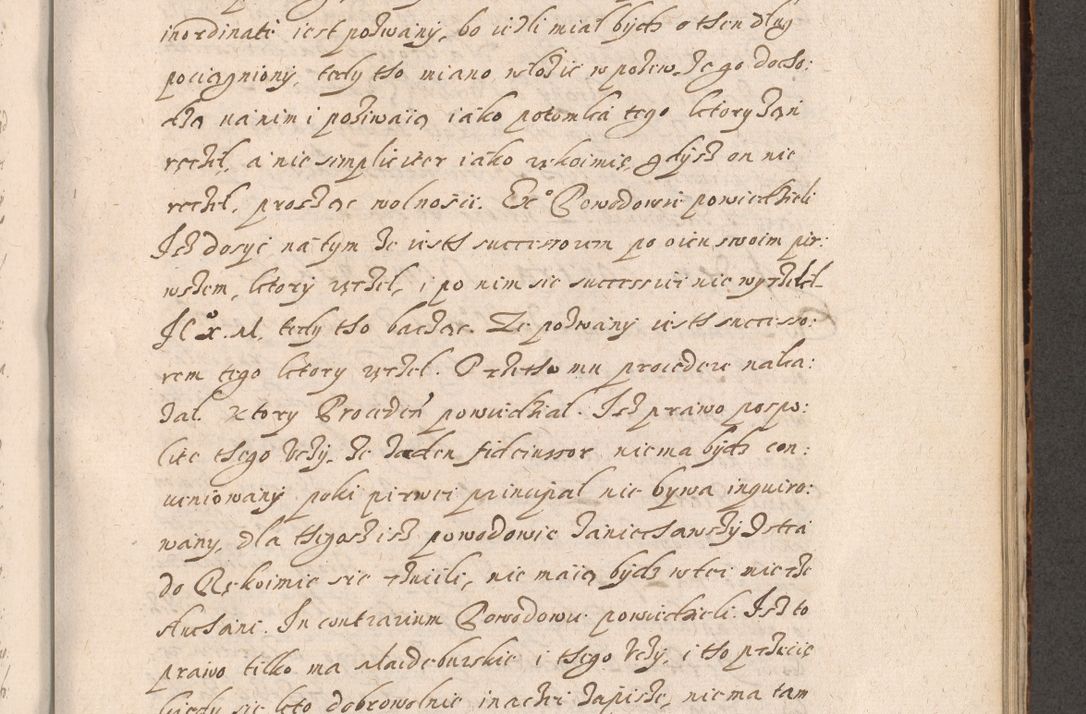 inordinate iest pozwany, bo ieżli miał bydz o then dług
pociągniony, tedy tho miano włożić w pozew, że go docho:
dzą na nim i pozwaią iako potomka tego ktory zań
ręczył, a nie simpliciter iako rękoimię, gdysz on nie
ręczył, prosząc wolnośći. Ex° Powodowie powiedzieli
Isz dosyć na tym że iesth successorem po oicu swoim pir:
wszem, ktory ręczeł, i po nim sie successiei nie wyrzekł
tedy tho bacząc. Ze pozwany iesth successo:
rem tego ktory ręczeł. Przetho mu procedere naka:
zał. Ktory Proceden powiedział. Isz prawo pospo:
lite thego Uczy, że żaden fideiussor nie ma bydz con:
ueniowany poki pierwei principal nie bywa inquiro:
wany, dla thegosz isz powodowie zaniechawszy Istca
do Rękoimie sie rzućili, nie maią bydz w tei mierze
słuchani. In contrarium Powodowie powiedzieli. Isz to
prawo tilko ma Maideburskie i thego Uczy, i tho przecie
kiedy sie kto dobrowolnie inaczei zapisze, nie ma tam